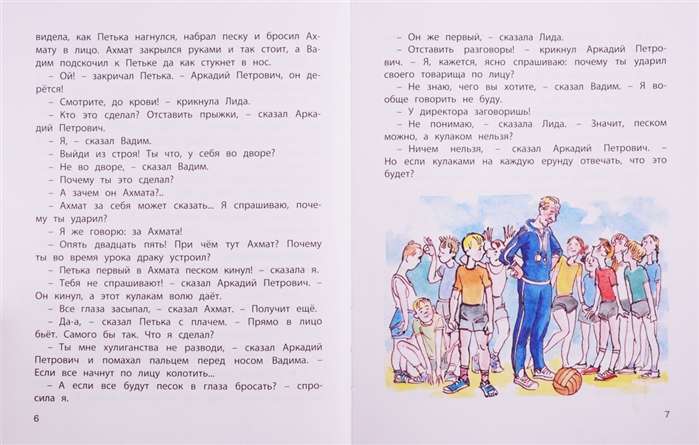 видела, как Петька нагнулся, набрал песку и бросил Ах-
мату в лицо. Ахмат закрылся руками и так стоит, а Ва-
дим подскочил к Петьке да как стукнет в нос.
– Ой! – закричал Петька. – Аркадий Петрович, он де-
рётся!
– Смотрите, до крови! – крикнула Лида.
– Кто это сделал? Отставить прыжки, – сказал Арка-
дий Петрович.
– Я, – сказал Вадим.
– Выйди из строя! Ты что, у себя во дворе?
– Не во дворе, – сказал Вадим.
– Почему ты это сделал?
– А зачем он Ахмата?..
– Ахмат за себя может сказать... Я спрашиваю, поче-
му ты ударил?
– Я же говорю: за Ахмата!
– Опять двадцать пять! При чём тут Ахмат? Почему
ты во время урока драку устроил?
– Петька первый в Ахмата песком кинул! – сказала я.
– Тебя не спрашивают! – сказал Аркадий Петрович. –
Он кинул, а этот кулакам волю даёт.
– Все глаза засыпал, – сказал Ахмат. – Получит ещё.
– Да-а, – сказал Петька с плачем. – Прямо в лицо
бьёт. Самого бы так. Что я сделал?
– Ты мне хулиганства не разводи, – сказал Аркадий
Петрович и помахал пальцем перед носом Вадима. –
Если все начнут по лицу колотить...
– А если все будут песок в глаза бросать? – спро-
сила я.
6
– Он же первый, – сказала Лида.
– Отставить разговоры! – крикнул Аркадий Петро-
вич. – Я, кажется, ясно спрашиваю: почему ты ударил
своего товарища по лицу?
– Не знаю, чего вы хотите, – сказал Вадим. – Я во-
обще говорить не буду.
– У директора заговоришь!
– Не понимаю, – сказала Лида. – Значит, песком
можно, а кулаком нельзя?
– Ничем нельзя, – сказал Аркадий Петрович. –
Но если кулаками на каждую ерунду отвечать, что это
будет?
7